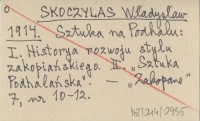 SKOCZYLAS Władysław
1914. Sztuka na Podhalu:
I. Historya rozwoju stylu
zakopiańskiego. II. "Sztuka
Podhalańska". — "Zakopane"
7, nr 10-12.